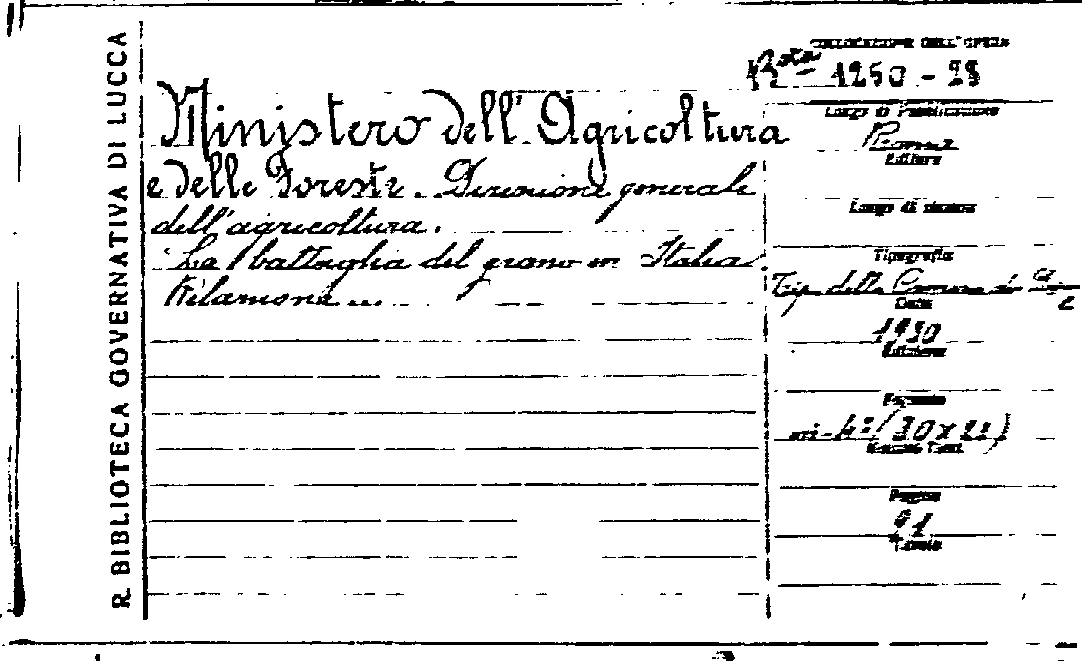 R. BIBLIOTECA GOVERNATIVA DI LUCCA
Ministero dell'Agricoltura
e delle Foreste. Direzione generale
dell'agricoltura.
La battaglia del grano in Italia.
COLLOCAZIONE DELL'OPERA
Bta 1250 - 28
Luogo di Pubblicazione
Roma
Editore
Luogo di stampa
Tipografia
Tip. della Camera dei
Data
1930
Edizione
Formato
in-4º (30x22)
Pagine
91
Tavole